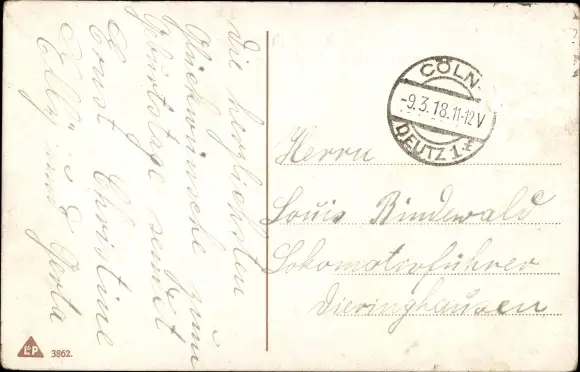 Die herzlichsten
Glückwünsche zum
Geburtstage sendet
Ernst Christine
Elly und Gerta
CÖLN-
-9.3.18.11-12V
DEUTZ 1
Herrn
Louis Bindewald
Lokomotivführer
Dieringhausen
L&P
3862.